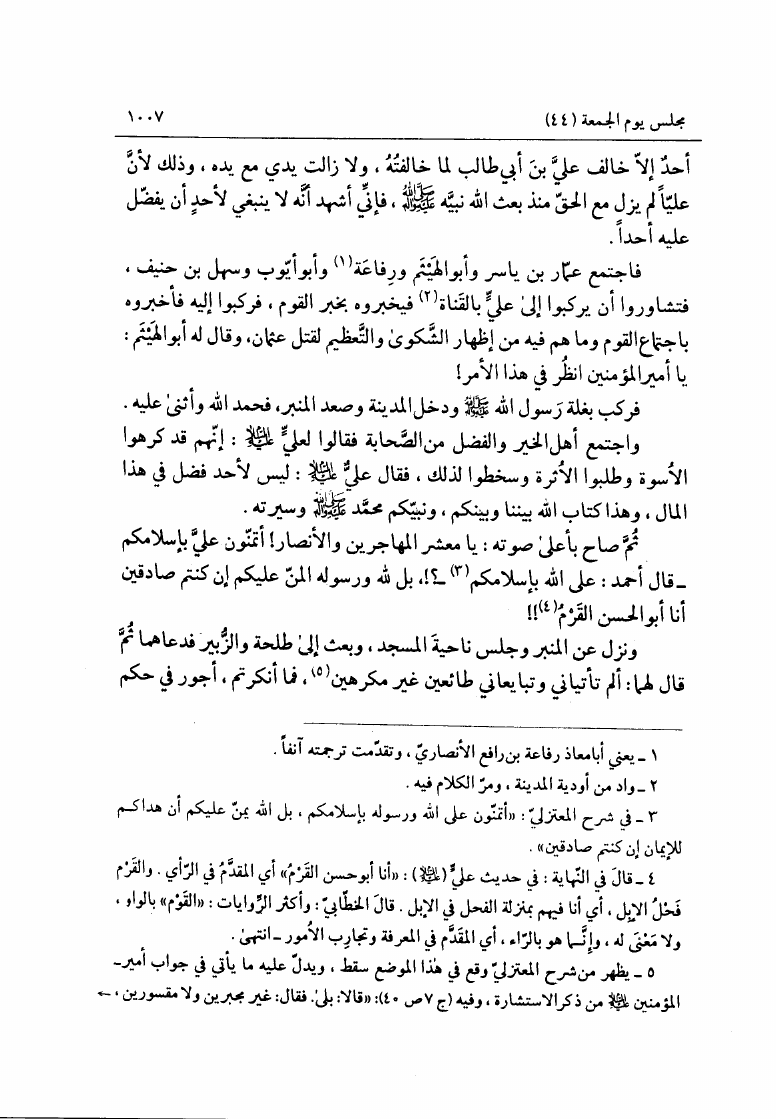 مجلس يوم الجمعة (٤٤) ١٠٠٧
أحدٌ إلاّ خالف عليَّ بنَ أبي‌طالب لما خالفتُهُ ، ولا زالت يدي مع يده ، وذلك لأنَّ
عليّاً لم يزل مع الحقّ منذ بعث الله نبيَّه ﷺ ، فإنّي أشهد أنَّه لا ينبغي لأحدٍ أن يفضّل
عليه أحداً .
فاجتمع عمّار بن ياسر وأبوالهَيْثم ورِفاعَة(١) وأبوأيّوب وسهل بن حنيف ،
فتشاوروا أن يركبوا إلىٰ عليٍّ بالقَناة(٢) فيخبروه بخبر القوم ، فركبوا إليه فأخبروه
باجتماع القوم وما هم فيه من إظهار الشَّكوىٰ والتَّعظيم لقتل عثمان، وقال له أبوالهَيْثم :
يا أميرالمؤمنين انظُر في هذا الأمر!
فركب بغلة رَسول الله ﷺ ودخل المدينة وصعد المنبر، فحمد الله وأثنىٰ عليه .
واجتمع أهل الخير والفضل من الصَّحابة فقالوا لعليٍّ ﵇ : إنّهم قد كرهوا
الأسوة وطلبوا الأثرة وسخطوا لذلك ، فقال عليٌّ ﵇ : ليس لأحد فضل في هذا
المال ، وهذا كتاب الله بيننا وبينكم ، ونبيّكم محمَّد ﷺ وسيرته .
ثُمَّ صاح بأعلىٰ صوته : يا معشر المهاجرين والأنصار! أتمنّون عليَّ بإسلامكم
ـ قال أحمد : على الله بإسلامكم(٣) ـ؟!، بل لله ورسوله المنّ عليكم إن كنتم صادقين
أنا أبوالحسن القَرْمُ(٤)!!
ونزل عن المنبر وجلس ناحيةَ المسجد ، وبعث إلىٰ طلحة والزُّبير فدعاهما ثُمَّ
قال لهما : ألم تأتياني وتبايعاني طائعين غير مكرهين(٥)، فما أنكرتم ، أجور في حكم
١ ـ يعني أبامعاذ رفاعة بن‌رافع الأنصاريّ ، وتقدّمت ترجمته آنفاً .
٢ ـ واد من أودية المدينة ، ومرّ الكلام فيه .
٣ ـ في شرح المعتزليّ : «أتمنّون على الله ورسوله بإسلامكم ، بل الله يمنّ عليكم أن هداكـم
للإيمان إن كنتم صادقين» .
٤ ـ قالَ في النّهاية : في حديث عليٍّ (﵇) : «أنا أبوحسن القَرْمُ» أي المقدَّمُ في الرّأي . والقَرْم
فَحْلُ الإبل ، أي أنا فيهم بمنزلة الفحل في الإبل . قالَ الخطّابيّ : وأكثر الرِّوايات : «القَوْم» بالواو ،
ولا مَعْنىٰ له ، وإنَّـما هو بالرّاء ، أي المقدَّم في المعرفة وتجارِب الأمور ـ انتهىٰ .
٥ ـ يظهر من شرح المعتزليّ وقع في هٰذا الموضع سقط ، ويدلّ عليه ما يأتي في جواب أمير‌ـ
المؤمنين ﵇ من ذكرالاستشارة ، وفيه (ج ٧ ص ٤٠): «قالا: بلىٰ. فقال: غير مجبرين ولا مقسورين ، ←